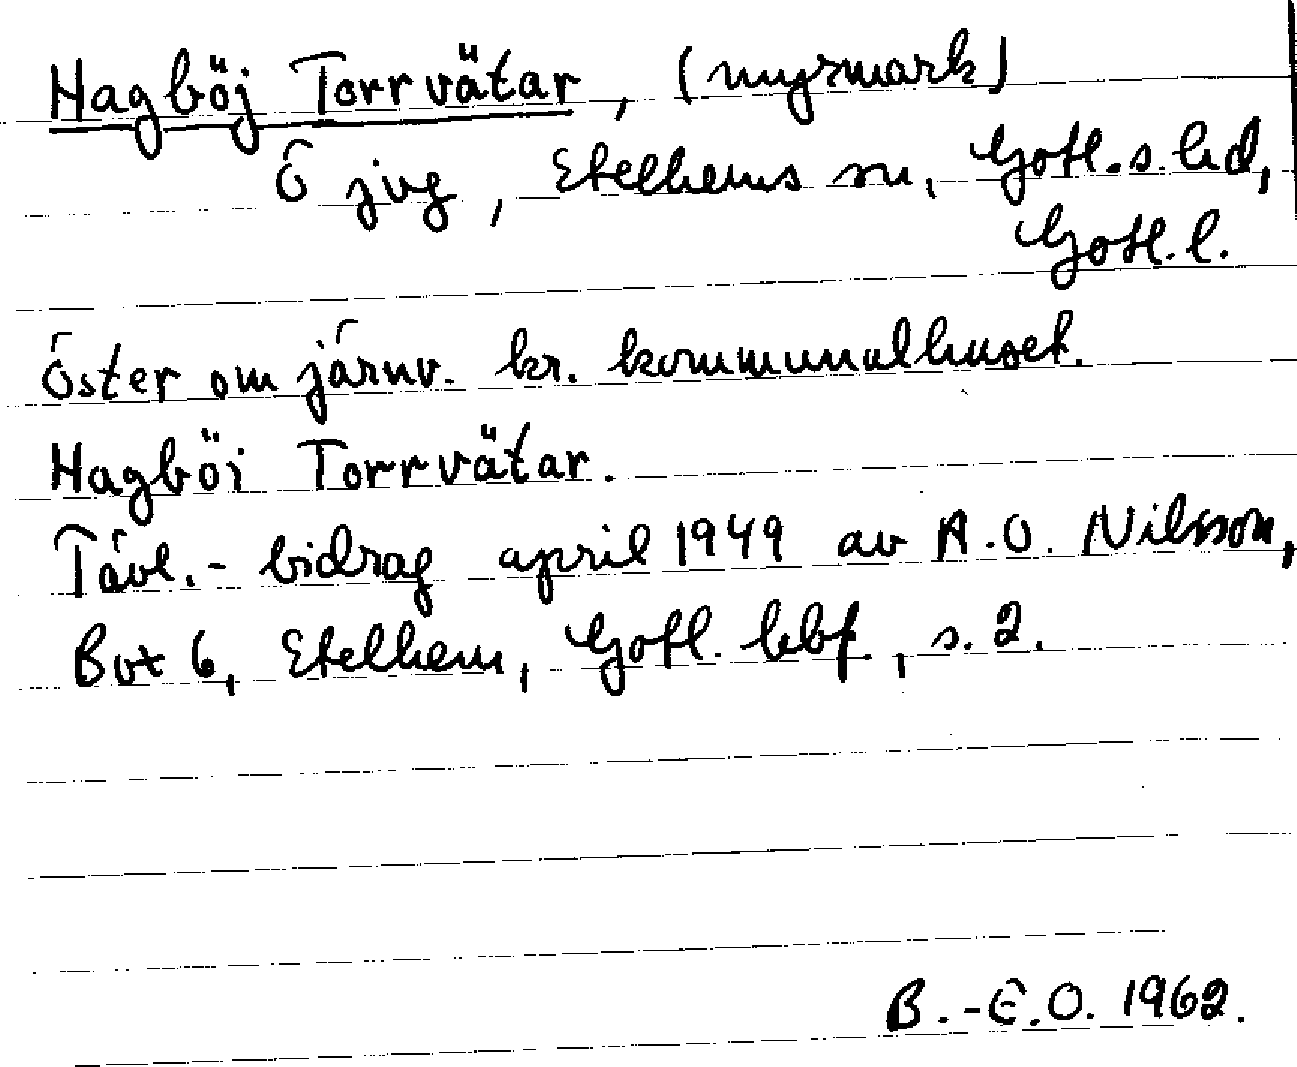 Hagböj Torrvätar, (myrmark)
Ö jvg, Etelhems sn, Gotl. s. hd,
Gotl. l.
Öster om järnv. kr. kommunalhuset.
Hagböi Torrvätar.
Tävl.- bidrag april 1949 av A.O. Nilsson,
Box 6, Etelhem, Gotl. hbf, s. 2.
B.-E.O. 1962.